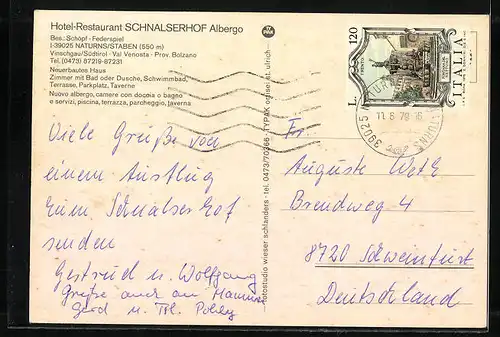 Hotel-Restaurant SCHNALSERHOF Albergo
Bes.: Schöpf - Federspiel
I-39025 NATURNS/STABEN (550 m)
Vinschgau/Südtirol - Val Venosta - Prov. Bolzano
Tel. (0473) 87219-87231
Neuerbautes Haus
Zimmer mit Bad oder Dusche, Schwimmbad,
Terrasse, Parkplatz, Taverne
Nuovo albergo, camere con doccia o bagno
e servizi, piscina, terrazza, parcheggio, taverna
Viele Grüße von
einem Ausflug
zum Schnalserhof
senden
Gertrud u. Wolfgang
Grüße auch an Mamma
Gerd u.
TYPAK
fotostudio wieser schlanders - tel. 0473/70366 - TYPAK
L. 120
ITALIA
39025
11.8.79
Fr.
Auguste
Brendweg 4
8720 Schweinfurt
Deutschland